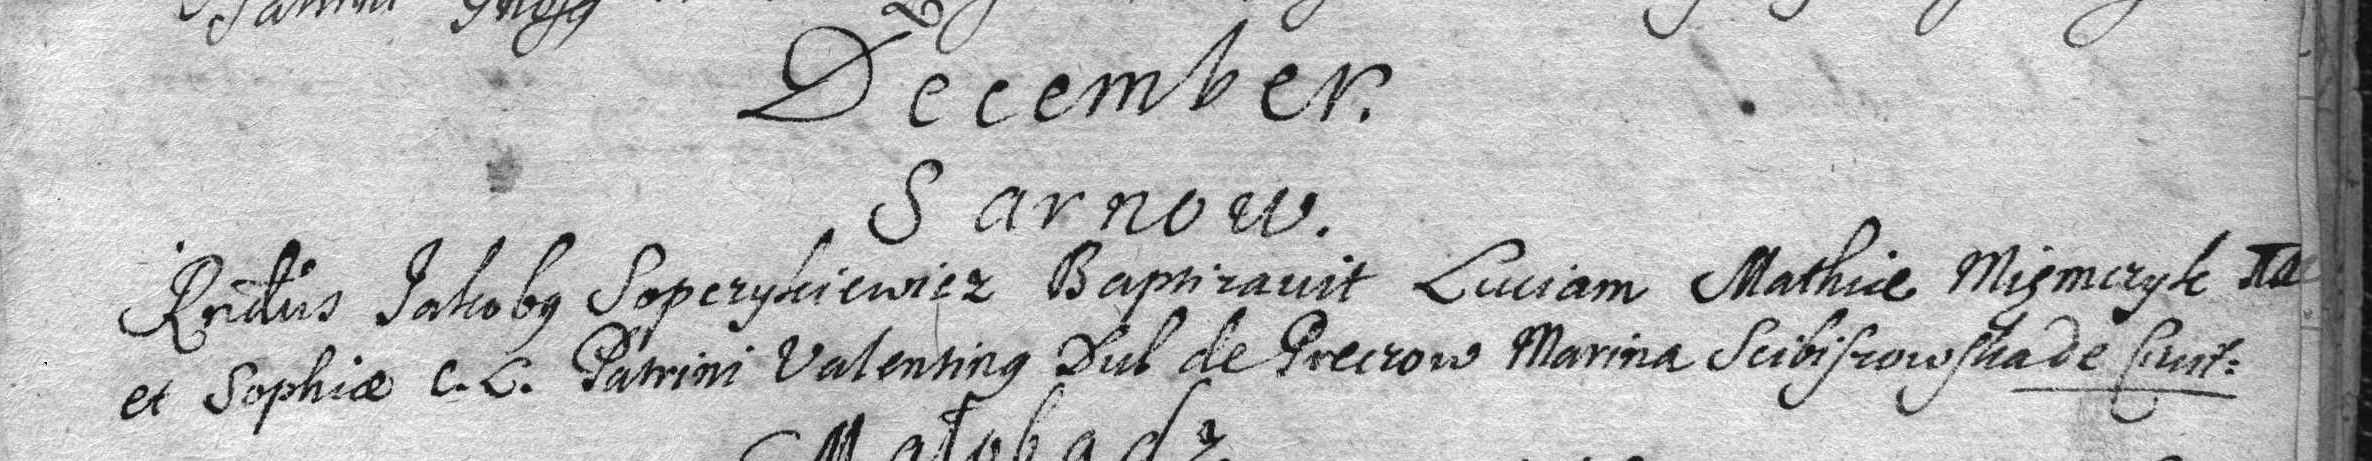 Patrini
December.
Sarnow.
Rndus Jakobg Sopczykiewicz Baptizauit Luciam Mathiæ Mięmczyk
et Sophiæ C. L. Patrini Valenting Dul de Preczow Marina Scibiszowska de
Małobądz